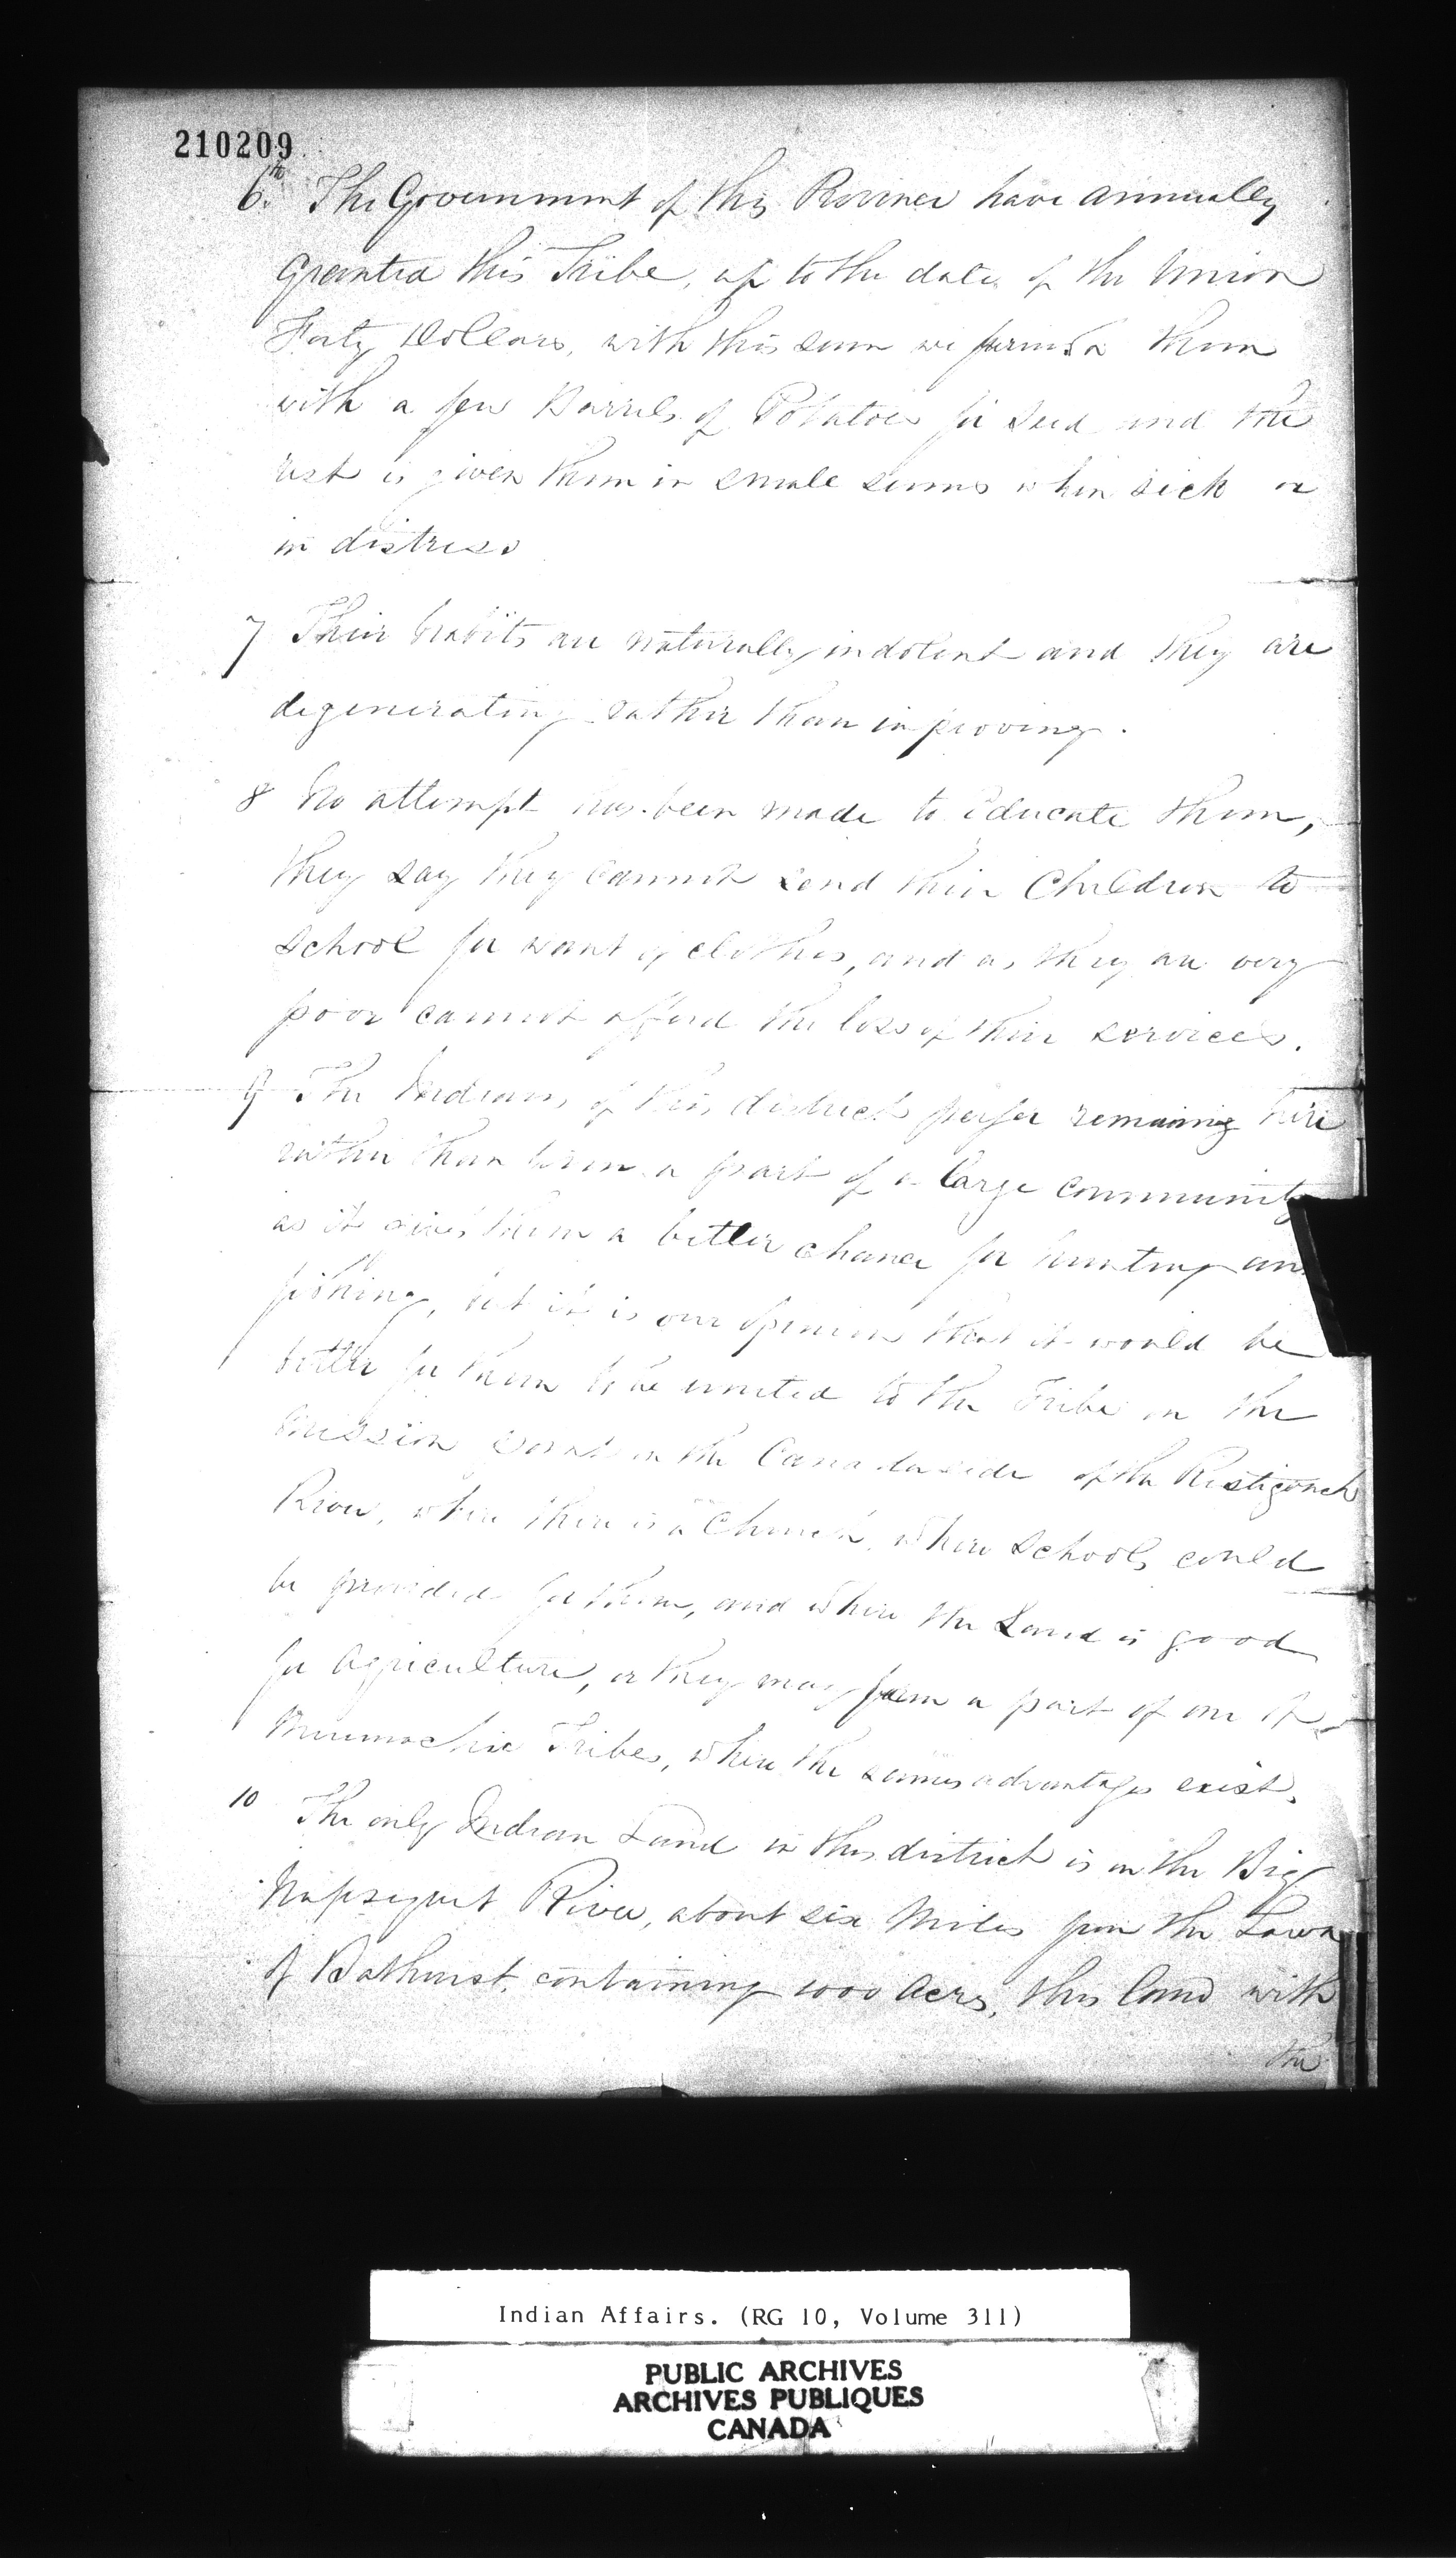 210209
6th. The Government of this Province have annually
granted this Tribe, up to the date of the Union
Forty Dollars, with this sum we furnish them
with a few Barrels of Potatoes for Seed and the
rest is given them in small sums when sick or
in distress
7 Their habits are naturally indolent and they are
degenerating rather than improving.
8 No attempt has been made to Educate them,
they say they cannot send their Children to
School for want of clothes, and as they are very
poor cannot afford the loss of their services.
9 The Indians of this district prefer remaining here
rather than form a part of a large community
as it gives them a better chance for hunting and
fishing, but it is our opinion that it would be
better for them to be united to the Tribe on the
Mission point on the Canada side of the Restigouch
River, where there is a Church, where Schools could
be provided for them, and where the Land is good
for Agriculture, or they may form a part of one of
Miramachie Tribes, where the same advantages exist.
10 The only Indian Land in this district is on the Big
Nipsiguit River, about six Miles from the Town
of Bathurst, containing 1000 Acres, this land with
the
Indian Affairs. (RG 10, Volume 311)
PUBLIC ARCHIVES
ARCHIVES PUBLIQUES
CANADA